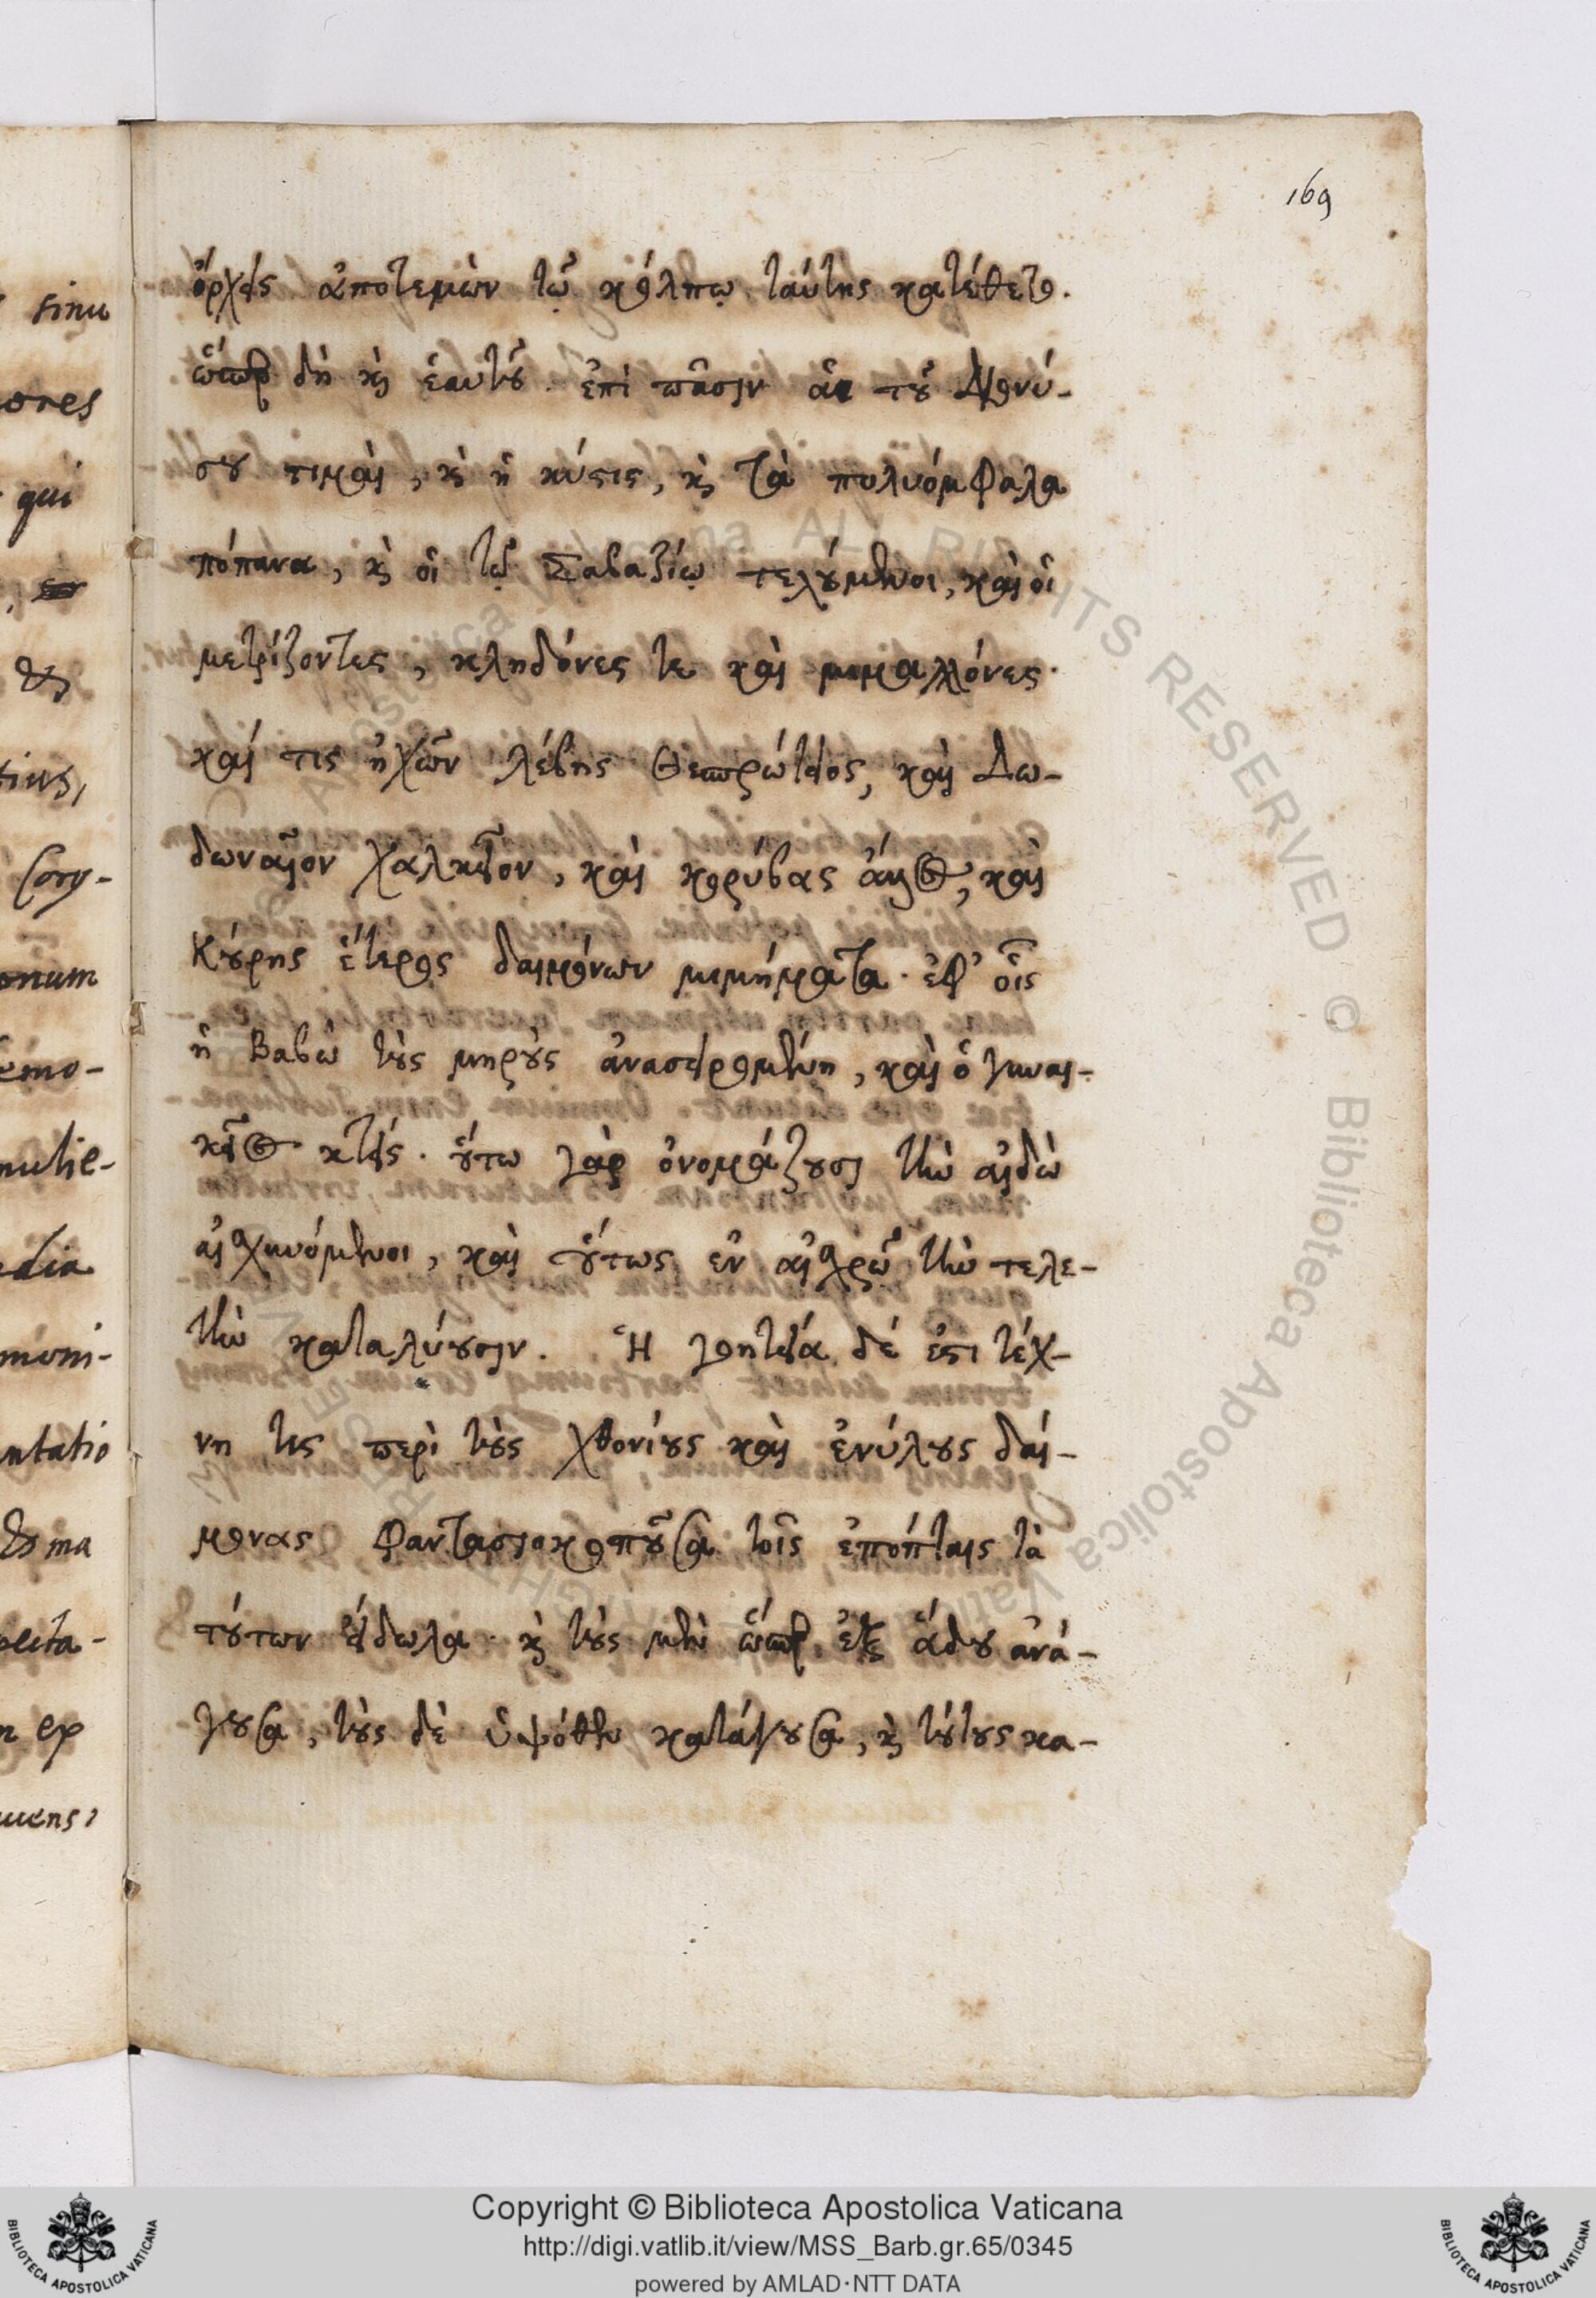 169
ὄρχεις ἀποτεμὼν τῷ κόλπῳ ταύτης κατέθετο.
ὥσπερ δὴ κὶ ἑαυτοῦ. ἐπὶ πᾶσιν αἱ τοῦ Διονύ-
σου τιμαὶ, κὶ ἡ κύστις, κὶ τὰ πολυόμφαλα
πόπανα, κὶ οἱ τῷ Σαβαζίῳ τελούμενοι, καὶ οἱ
μετρίζοντες, κληδόνες τε καὶ μιμαλλόνες.
καί τις ἠχῶν λέβης Θεσπρώτειος, καὶ Δω-
δωναῖον χαλκεῖον, καὶ κορύβας ἄλλος, καὶ
Κούρης ἕτερος δαιμόνων μιμήματα. ἐφ' οἷς
ἡ Βαβὼ τοὺς μηροὺς ἀνασυρομένη, καὶ ὁ γυναι-
κεῖος κτείς. οὕτω γὰρ ὀνομάζουσι τὴν αἰδὼ
αἰσχυνόμενοι, καὶ οὕτως ἐν αἰσχρῷ τὴν τελε-
τὴν καταλύουσιν. Ἡ γοητεία δέ ἐστι τέχ-
νη τις περὶ τοὺς χθονίους καὶ ἐνύλους δαί-
μονας φαντασιοκοποῦσα τοῖς ἐπόπταις τὰ
τούτων εἴδωλα. κὶ τοὺς μὲν ὥσπερ ἐξ ᾅδου ἀνά-
γουσα, τοὺς δὲ ὑψόθεν κατάγουσα, κὶ τούτους κα-
sinu
ores
qui
&
tius,
Cory-
onum
mulie-
edia
moni-
ntatio
& ma
n ex
Copyright © Biblioteca Apostolica Vaticana
http://digi.vatlib.it/view/MSS_Barb.gr.65/0345
powered by AMLAD·NTT DATA
BIBLIOTECA APOSTOLICA VATICANA
BIBLIOTECA APOSTOLICA VATICANA